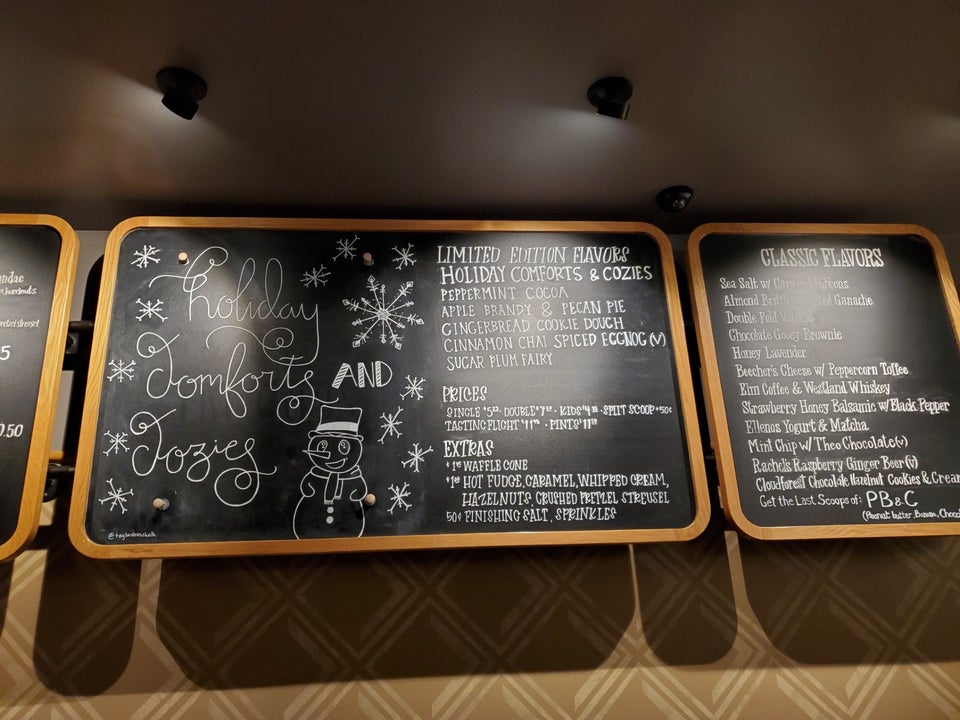 ndae
hazelnuts
streusel
5
0.50
holiday
Comforts AND
Cozies
@taylordoeschalk
LIMITED EDITION FLAVORS
HOLIDAY COMFORTS & COZIES
PEPPERMINT COCOA
APPLE BRANDY & PECAN PIE
GINGERBREAD COOKIE DOUGH
CINNAMON CHAI SPICED EGGNOG (V)
SUGAR PLUM FAIRY
PRICES
SINGLE $5. DOUBLE $7. KIDS $4. SPLIT SCOOP +50¢
TASTING FLIGHT $11. PINTS $11
EXTRAS
$1 WAFFLE CONE
$1 HOT FUDGE, CARAMEL, WHIPPED CREAM,
HAZELNUTS, CRUSHED PRETZEL STREUSEL
50¢ FINISHING SALT, SPRINKLES
CLASSIC FLAVORS
Sea Salt w/ Caramel Ribbons
Almond Ganache
Double Fold
Chocolate Gooey Brownie
Honey Lavender
Beecher's Cheese w/ Peppercorn Toffee
Elm Coffee & Westland Whiskey
Strawberry Honey Balsamic w/ Black Pepper
Ellenos Yogurt & Matcha
Mint Chip w/ Theo Chocolate (v)
Rachel's Raspberry Ginger Beer (v)
Cloudforest Chocolate Hazelnut Cookies & Cream
Get the Last Scoops of: PB & C
(Peanut butter, Banana, Choc